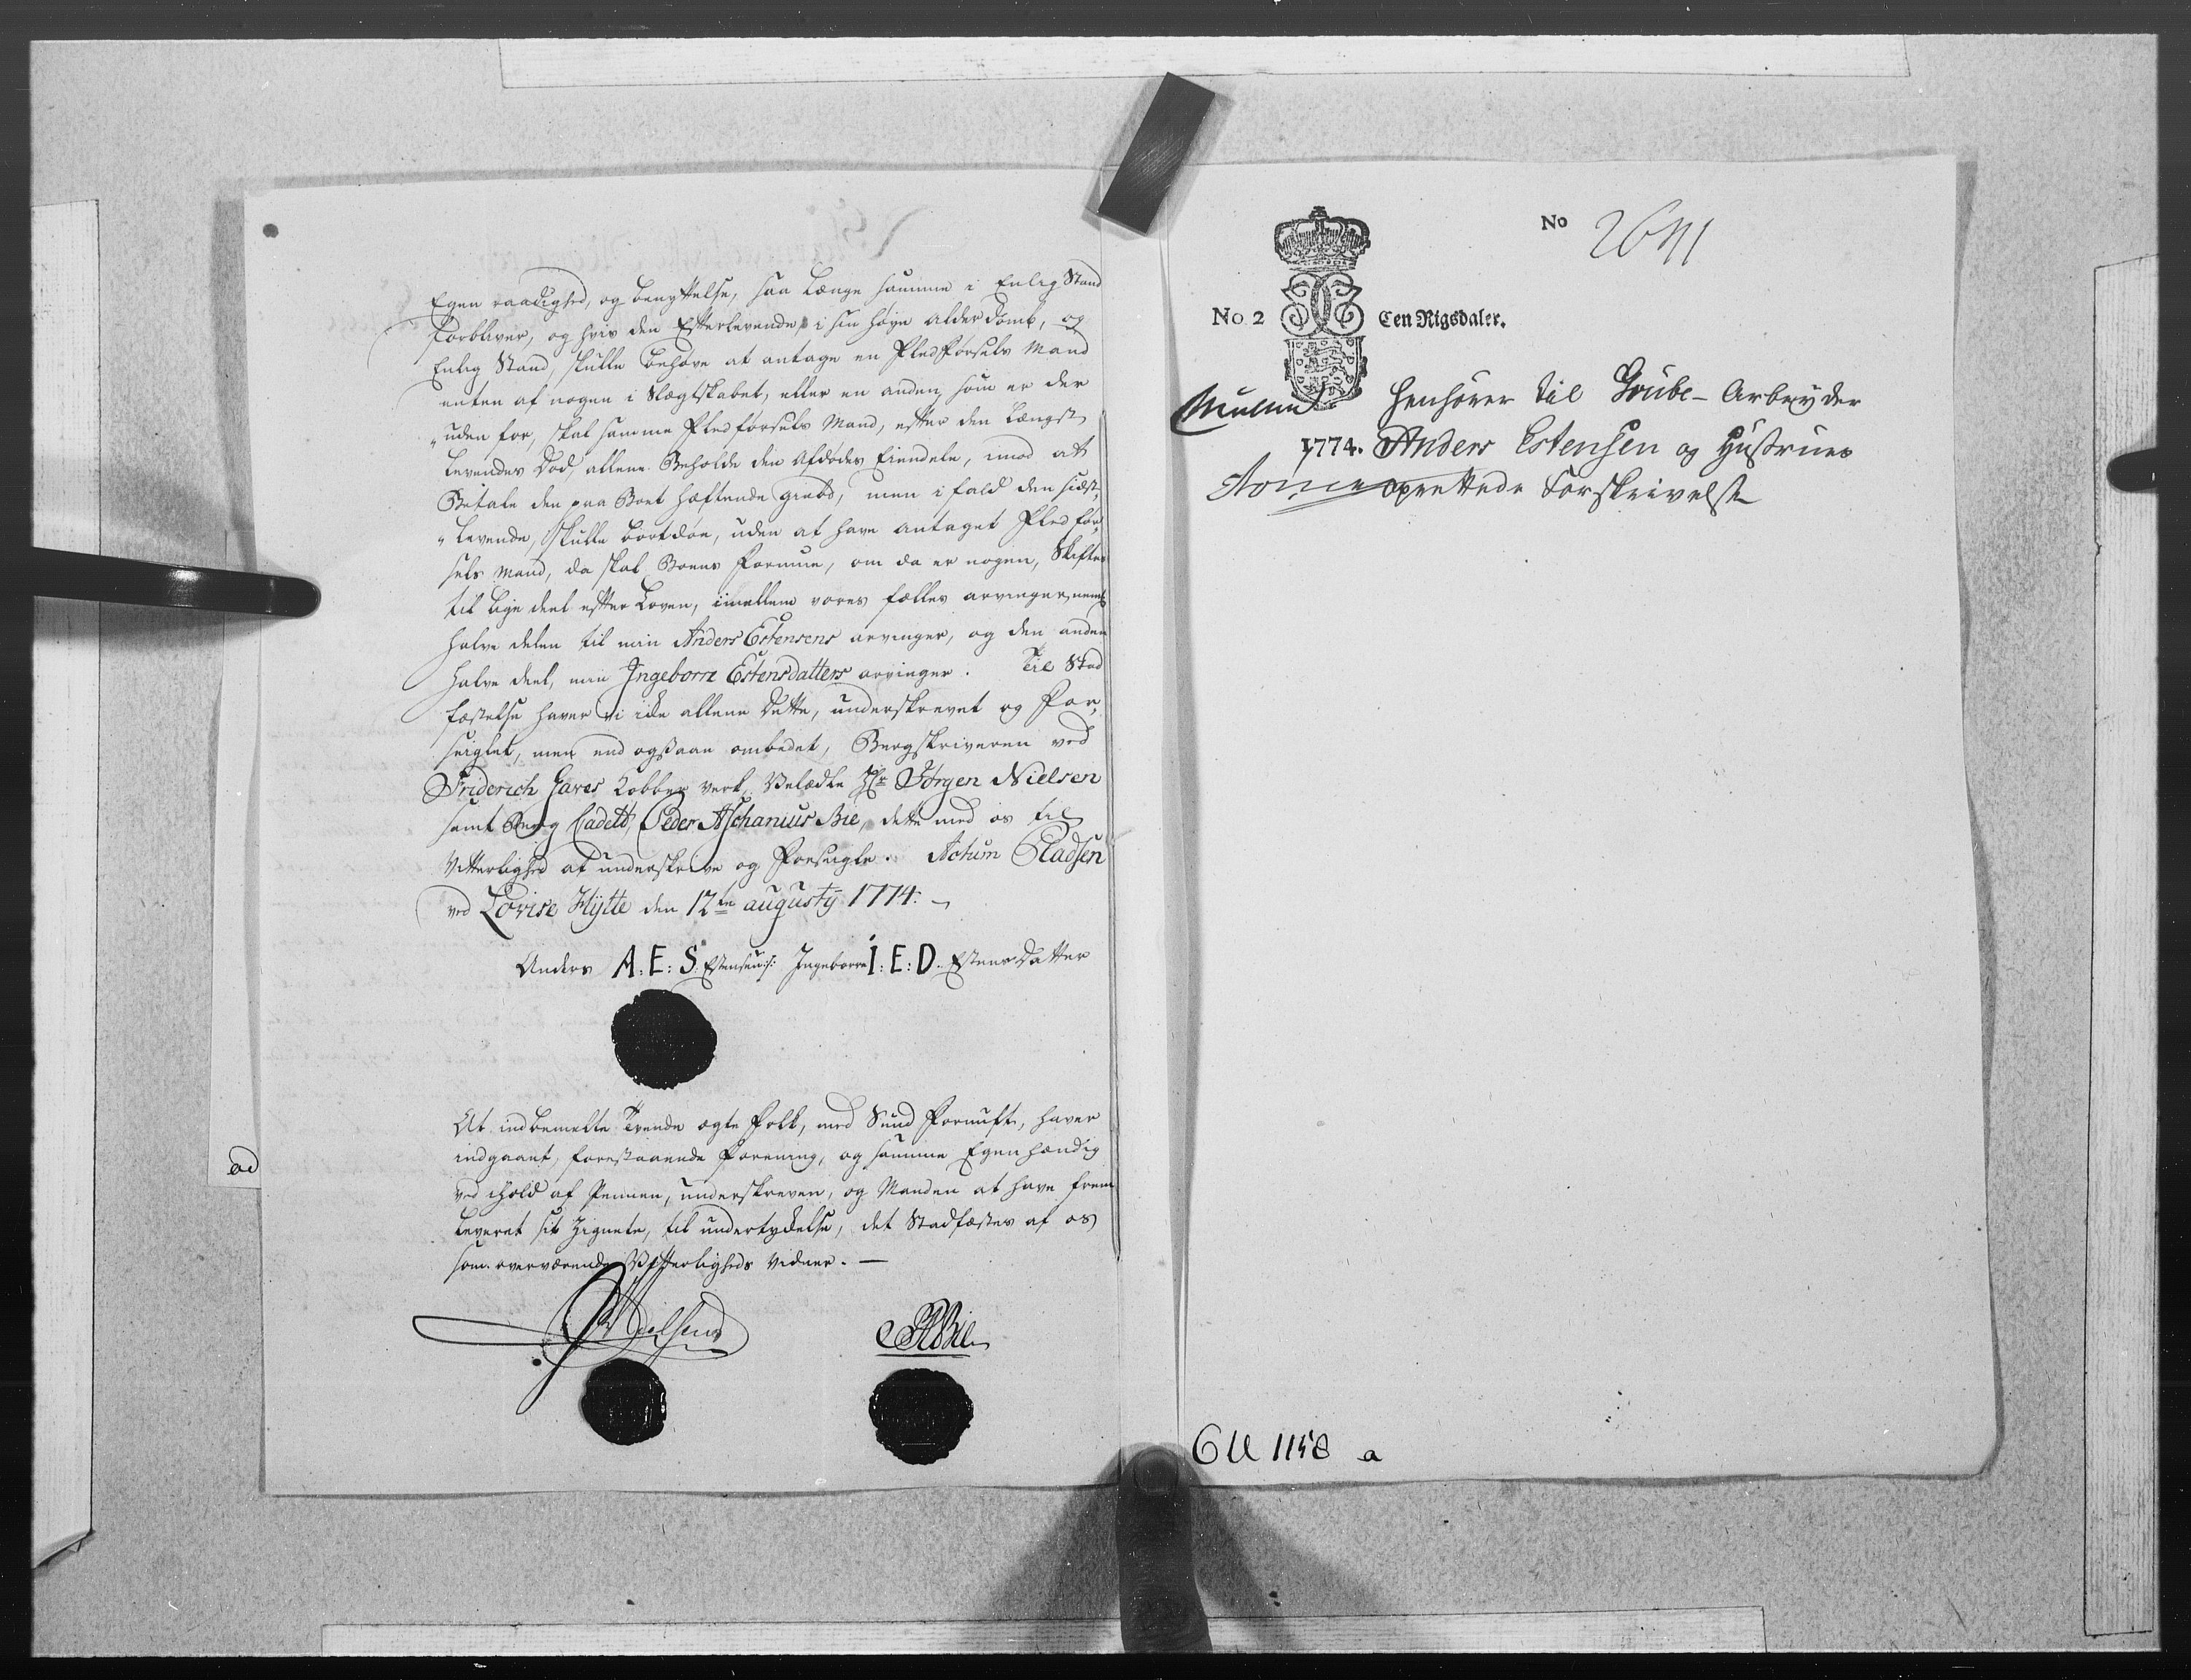 Egen raadighed, og benyttelse, saa Længe samme i Enlig Stand
forbliver, og hvis den Efterlevende i sin høye alderdomb, og
Enlig Stand, skulle behøve at antage en Fledførsels Mand
enten af nogen i Slægtskabet, eller en anden som er der
uden for, skal samme Fledførsels Mand, efter den Længst
Levendes Død, allene Beholde den Afdødes Eiendele, imod at
Betale den paa Boet hæftende giæld, men i fald den sidst
Levende, skulle bortdøe, uden at have antaget Fledfør-
sels Mand, da skal Boens formue, om da er nogen, Skiftes
til lige deel efter Loven, imellem vores fælles arvinger, nemlig
halve delen til min Anders Estensens arvinger, og den anden
halve deel, min Ingeborre Estensdatters arvinger. Til Stad
fæstelse haver vi icke allene Dette, underskrevet og For-
seiglet, men end ogsaa ombedet, Bergskriveren ved
Friderich Gaves Kobber verk, Velædle Hr Jørgen Nielsen
samt Berg Cadett, Peder Aschanius Bie, dette med os til
Vitterlighed at underskrive og Forseigle. Actum Pladsen
ved Lovise Hytte den 12te augusty 1774.
Anders A. E: S. Estensen Ingeborre I: E: D. Estens Datter
At indbemelte Tvende ægte Folk, med Sund Fornuft, haver
indgaaet, forestaaende Forening, og samme Egenhændig
ved ihold af Pennen, underskreven, og Manden at have frem
leveret sit Zignete, til undertrykkelse, det Stadfæstes af os
som overværende Vitterligheds vidner.
Nielsen
PABie
ad
No
No 2 Een Rigsdaler.
Henhører til Grube-Arbeyder
1774. Anders Estensen og Hustrues
oprettede Forskrivelse
GU 1158 a